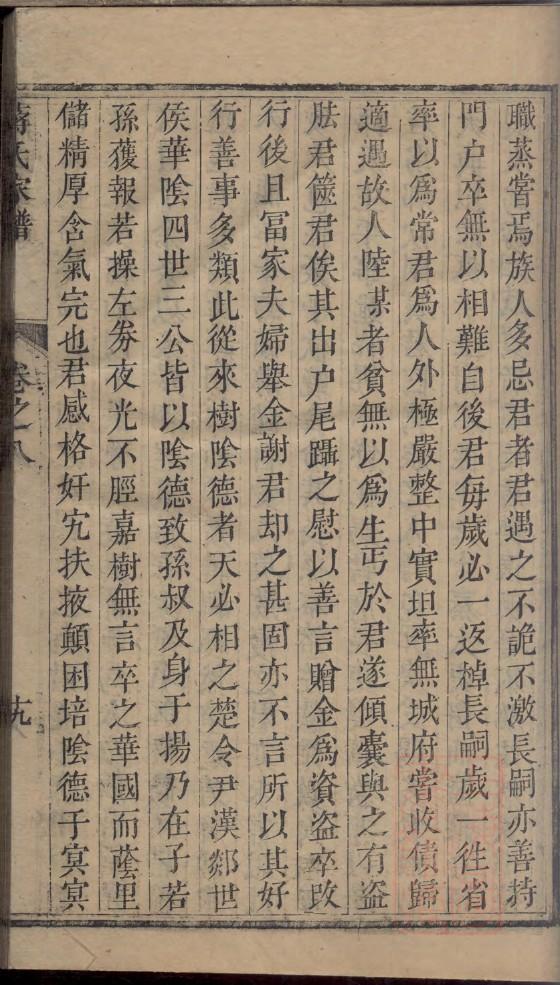 職蒸嘗焉族人多忌君者君遇之不詭不激長嗣亦善持
門户卒無以相難自後君每歲必一返棹長嗣歲一徃省
率以爲常君爲人外極嚴整中實坦率無城府嘗收債歸
適遇故人陸某者貧無以爲生丐於君遂傾囊與之有盜
胠君篋君俟其出户尾躡之慰以善言贈金爲資盜卒改
行後且冨家夫婦舉金謝君却之甚固亦不言所以其好
行善事多類此從來樹隂德者天必相之楚令尹漢郯世
侯華隂四世三公皆以隂德致孫叔及身于揚乃在子若
孫獲報若操左劵夜光不脛嘉樹無言卒之華國而蔭里
儲精厚含氣完也君感格奸宄扶掖顛困培隂德于冥冥
蔣氏家譜
卷之八
十九